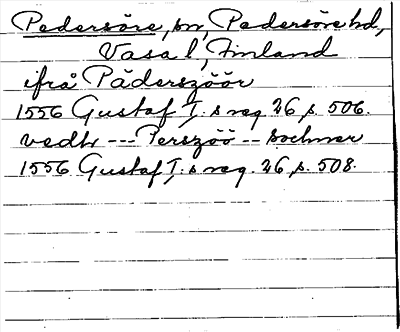 Pedersöre, sn, Pedersöre hd,
Vasa l, Finland
ifrå Päderszöör
1556 Gustaf I:s reg. 26, s. 506.
vedh --- Perszöö -- sochner
1556 Gustaf I:s reg. 26, s. 508.